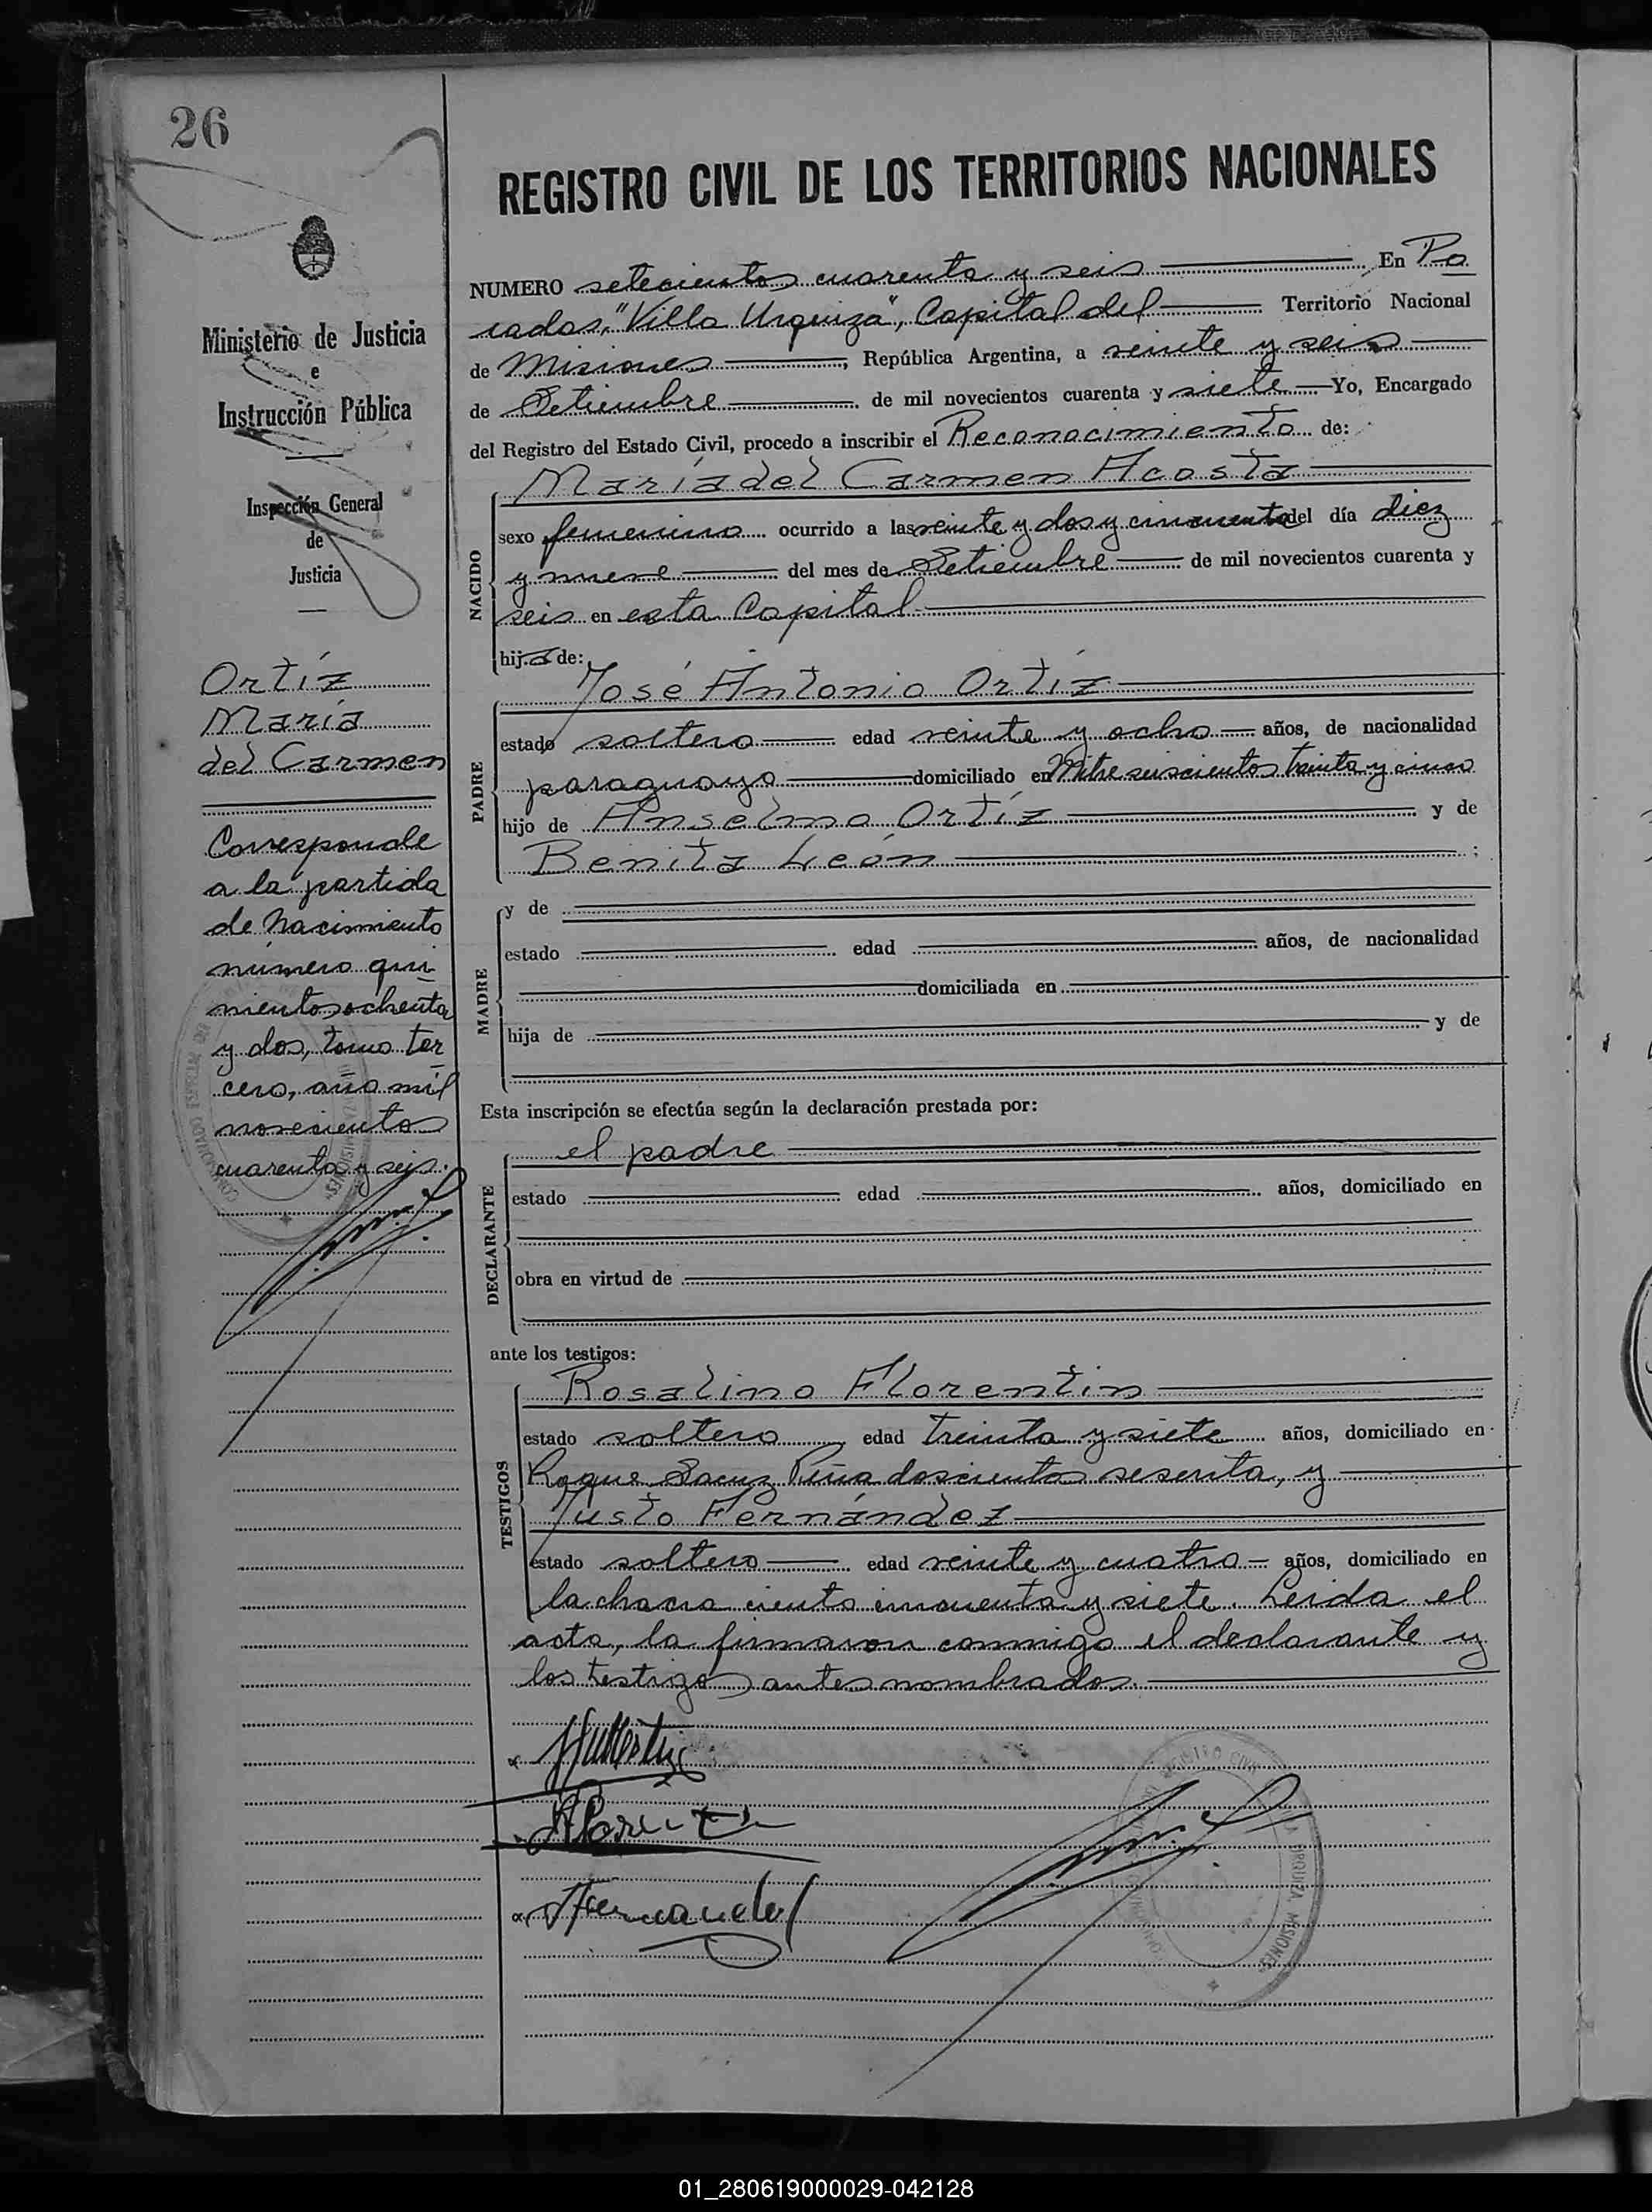 26
REGISTRO CIVIL DE LOS TERRITORIOS NACIONALES
Ministerio de Justicia
e
Instrucción Pública
Inspección General
de
Justicia
Ortíz
María
del Carmen
Corresponde
a la partida
de Nacimiento
número qui
nientos ochenta
y dos, tomo ter
cero, año mil
novecientos
cuarenta y seis.
NUMERO setecientos cuarenta y seis En Po
sadas, "Villa Urquiza", Capital del Territorio Nacional
de Misiones, República Argentina, a veinte y seis
de Setiembre de mil novecientos cuarenta y siete Yo, Encargado
del Registro del Estado Civil, procedo a inscribir el Reconocimiento de:
María del Carmen Acosta
NACIDO
sexo femenino ocurrido a las veinte y dos y cincuenta del día diez
y nueve del mes de Setiembre de mil novecientos cuarenta y
seis en esta Capital
hija de:
José Antonio Ortíz
PADRE
estado soltero edad veinte y ocho años, de nacionalidad
paraguayo domiciliado en Mitre seiscientos treinta y cinco
hijo de Anselmo Ortíz y de
Benita León ;
MADRE
y de
estado edad años, de nacionalidad
domiciliada en
hija de y de
Esta inscripción se efectúa según la declaración prestada por:
el padre
DECLARANTE
estado edad años, domiciliado en
obra en virtud de
ante los testigos:
Rosalino Florentin
TESTIGOS
estado soltero edad treinta y siete años, domiciliado en
Roque Saenz Peña doscientos sesenta, y
Justo Fernández
estado soltero edad veinte y cuatro años, domiciliado en
la chacra ciento cincuenta y siete. Leida el
acta, la firmaron conmigo el declarante y
los testigos antes nombrados.
REGISTRO CIVIL
URQUIZA MISIONES
01_280619000029-042128